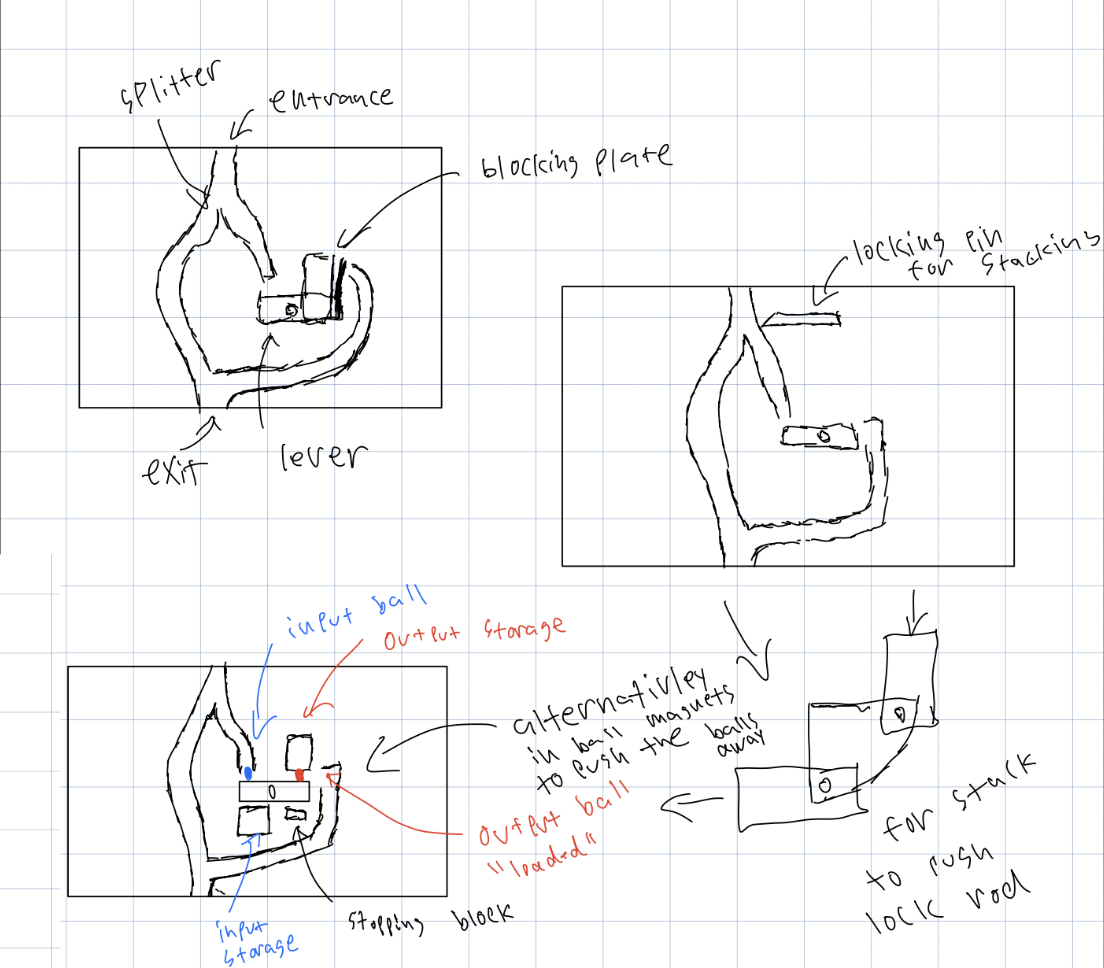 splitter
entrance
blocking plate
exit
lever
locking pin
for stacking
input ball
output storage
alternativley
in ball magnets
to push the balls
away
output ball
"loaded"
input
storage
stopping block
for stack
to push
lock rod